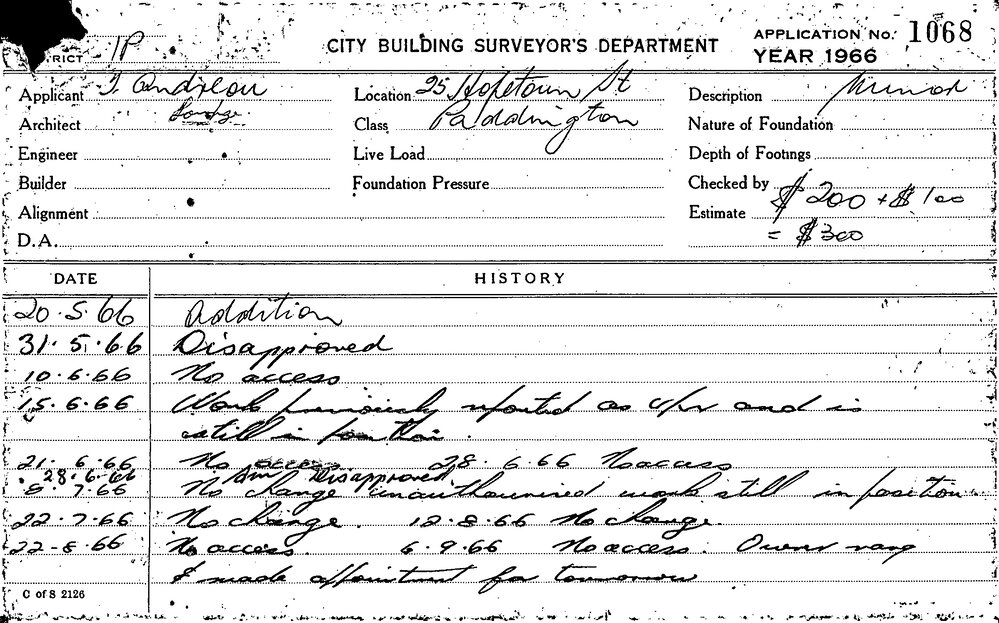 RICT 1P CITY BUILDING SURVEYOR'S DEPARTMENT APPLICATION No. 1068
YEAR 1966
Applicant J. Andreou Location 25 Hopetoun St Description Minor
Architect Class Paddington Nature of Foundation
Engineer Live Load Depth of Footings
Builder Foundation Pressure Checked by
Alignment Estimate $200 + $100
D.A. = $300
DATE HISTORY
20.5.66 Addition
31.5.66 Disapproved
10.6.66 No access
15.6.66 Work previously reported as and is
still in position.
21.6.66 No access 28.6.66 No access
28.6.66 Disapproved
8.7.66 No change unauthourised work still in position
22.7.66 No change. 12.8.66 No change.
22-8.66 No access. 6.9.66 No access. Owner rang
& made appointment for tomorrow
C of S 2126